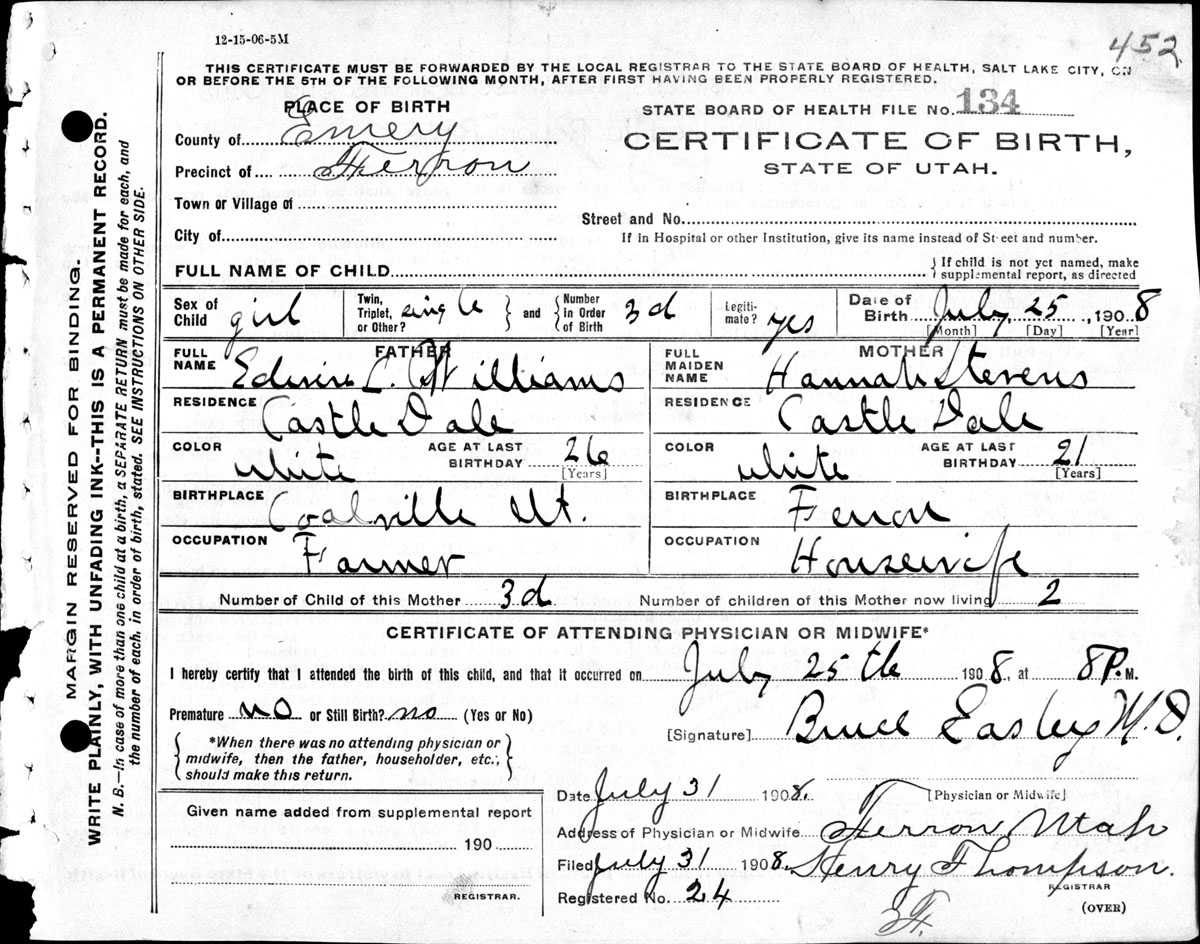 12-15-06-5M
452
THIS CERTIFICATE MUST BE FORWARDED BY THE LOCAL REGISTRAR TO THE STATE BOARD OF HEALTH, SALT LAKE CITY, ON
OR BEFORE THE 5TH OF THE FOLLOWING MONTH, AFTER FIRST HAVING BEEN PROPERLY REGISTERED.
PLACE OF BIRTH
STATE BOARD OF HEALTH FILE No. 134
County of Emery
CERTIFICATE OF BIRTH,
Precinct of Ferron
STATE OF UTAH.
Town or Village of
Street and No.
City of
If in Hospital or other Institution, give its name instead of Street and number.
FULL NAME OF CHILD
If child is not yet named, make
supplemental report, as directed
Sex of Child girl
Twin, Triplet, or Other? single and Number in Order of Birth 3d
Legiti-mate? yes
Date of Birth July 25, 1908
[Month] [Day] [Year]
FATHER
FULL NAME Edwin L. Williams
MOTHER
FULL MAIDEN NAME Hannah Stevens
RESIDENCE Castle Dale
RESIDENCE Castle Dale
COLOR white AGE AT LAST BIRTHDAY 26 [Years]
COLOR white AGE AT LAST BIRTHDAY 21 [Years]
BIRTHPLACE Coalville Ut.
BIRTHPLACE Ferron
OCCUPATION Farmer
OCCUPATION Housewife
Number of Child of this Mother 3d Number of children of this Mother now living 2
CERTIFICATE OF ATTENDING PHYSICIAN OR MIDWIFE*
I hereby certify that I attended the birth of this child, and that it occurred on July 25th 1908, at 8 P. M.
Premature no or Still Birth? no (Yes or No)
[Signature] Bruce Easley M.D.
*When there was no attending physician or
midwife, then the father, householder, etc.,
should make this return.
[Physician or Midwife]
Date July 31 1908.
Given name added from supplemental report
190
REGISTRAR.
Address of Physician or Midwife Ferron Utah
Filed July 31 1908. Henry Thompson.
REGISTRAR
Registered No. 24
(OVER)
MARGIN RESERVED FOR BINDING.
WRITE PLAINLY, WITH UNFADING INK--THIS IS A PERMANENT RECORD.
N. B.—In case of more than one child at a birth, a SEPARATE RETURN must be made for each, and
the number of each, in order of birth, stated. SEE INSTRUCTIONS ON OTHER SIDE.